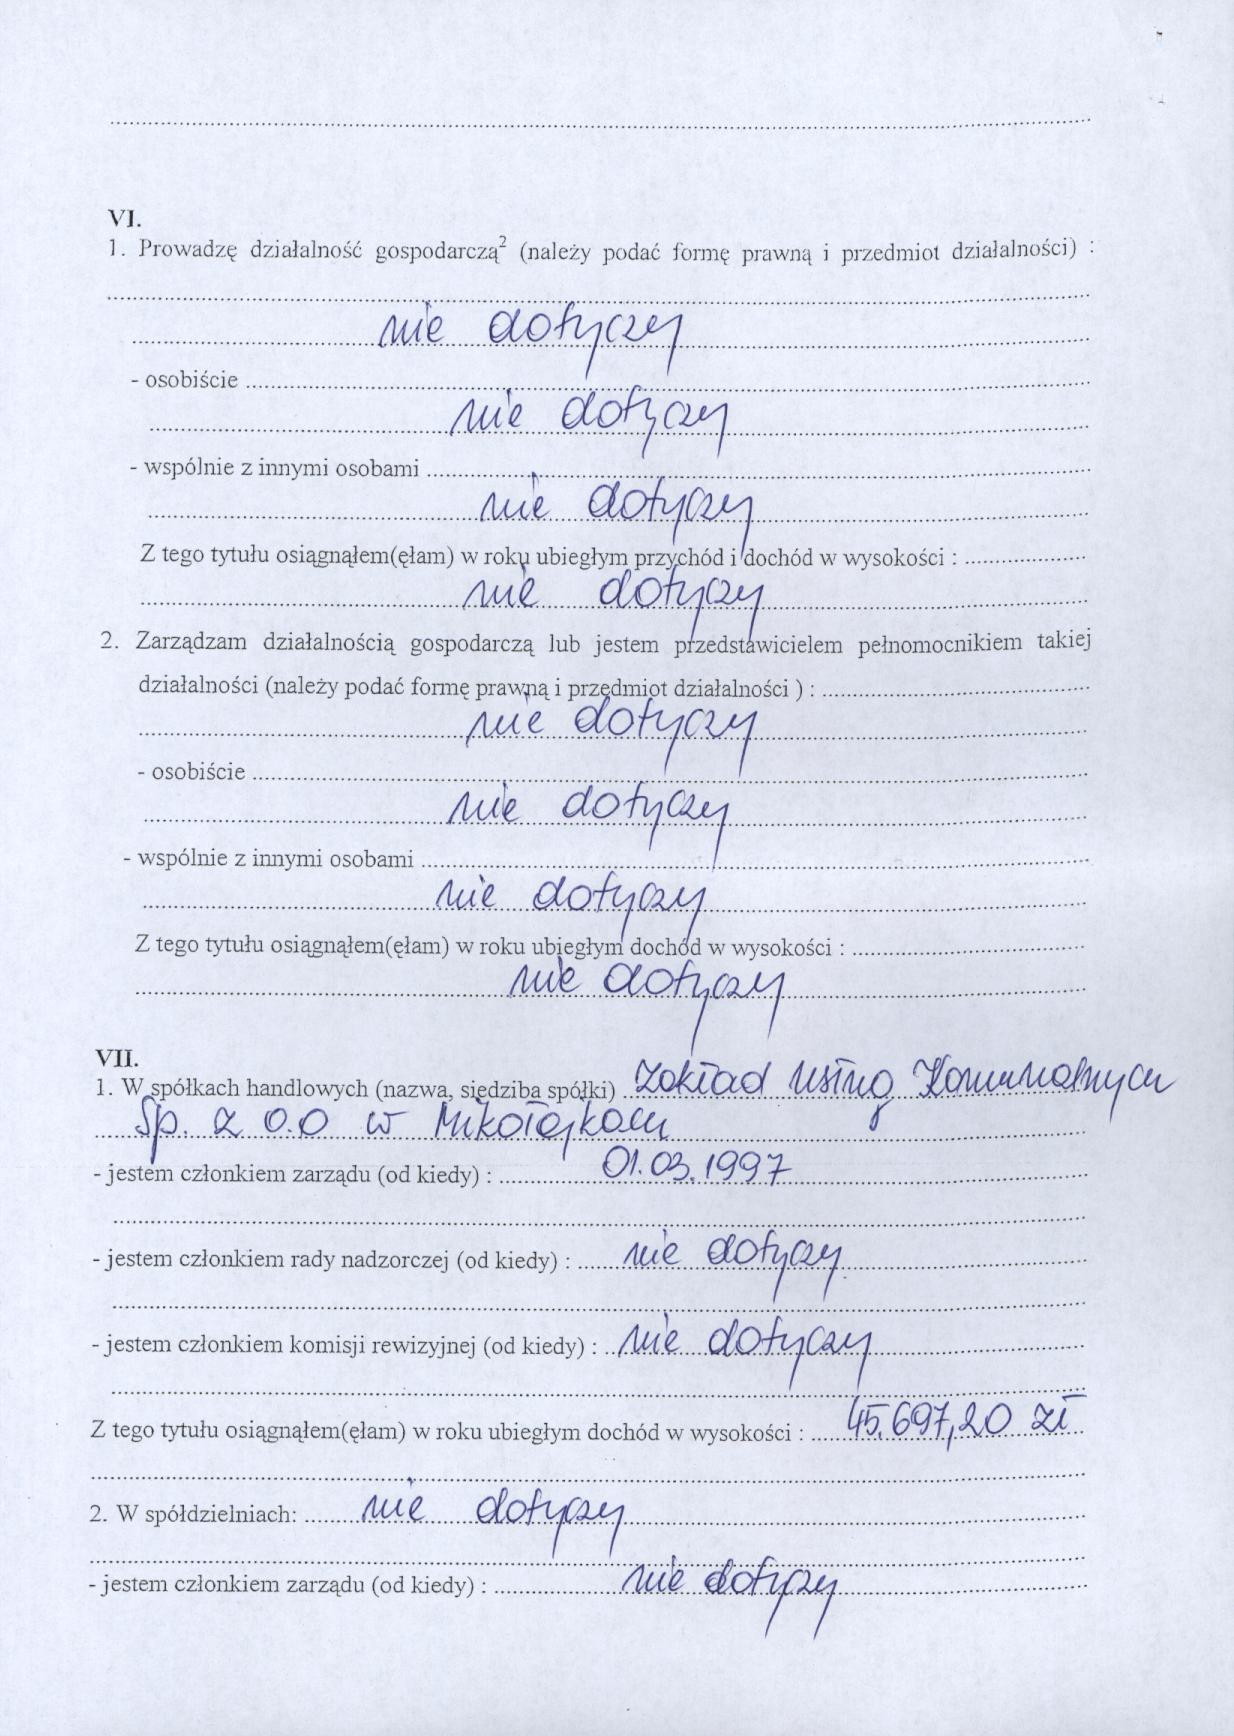 VI.
1. Prowadzę działalność gospodarczą² (należy podać formę prawną i przedmiot działalności) :
nie dotyczy
- osobiście
nie dotyczy
- wspólnie z innymi osobami
nie dotyczy
Z tego tytułu osiągnąłem(ęłam) w roku ubiegłym przychód i dochód w wysokości :
nie dotyczy
2. Zarządzam działalnością gospodarczą lub jestem przedstawicielem pełnomocnikiem takiej
działalności (należy podać formę prawną i przedmiot działalności ) :
nie dotyczy
- osobiście
nie dotyczy
- wspólnie z innymi osobami
nie dotyczy
Z tego tytułu osiągnąłem(ęłam) w roku ubiegłym dochód w wysokości :
nie dotyczy
VII.
1. W spółkach handlowych (nazwa, siedziba spółki) Zakład Usług Komunalnych
Sp. z o.o w Mikołajkach
- jestem członkiem zarządu (od kiedy) : 01.03.1997
- jestem członkiem rady nadzorczej (od kiedy) : nie dotyczy
- jestem członkiem komisji rewizyjnej (od kiedy) : nie dotyczy
Z tego tytułu osiągnąłem(ęłam) w roku ubiegłym dochód w wysokości : 45.697,20 zł
2. W spółdzielniach: nie dotyczy
- jestem członkiem zarządu (od kiedy) : nie dotyczy